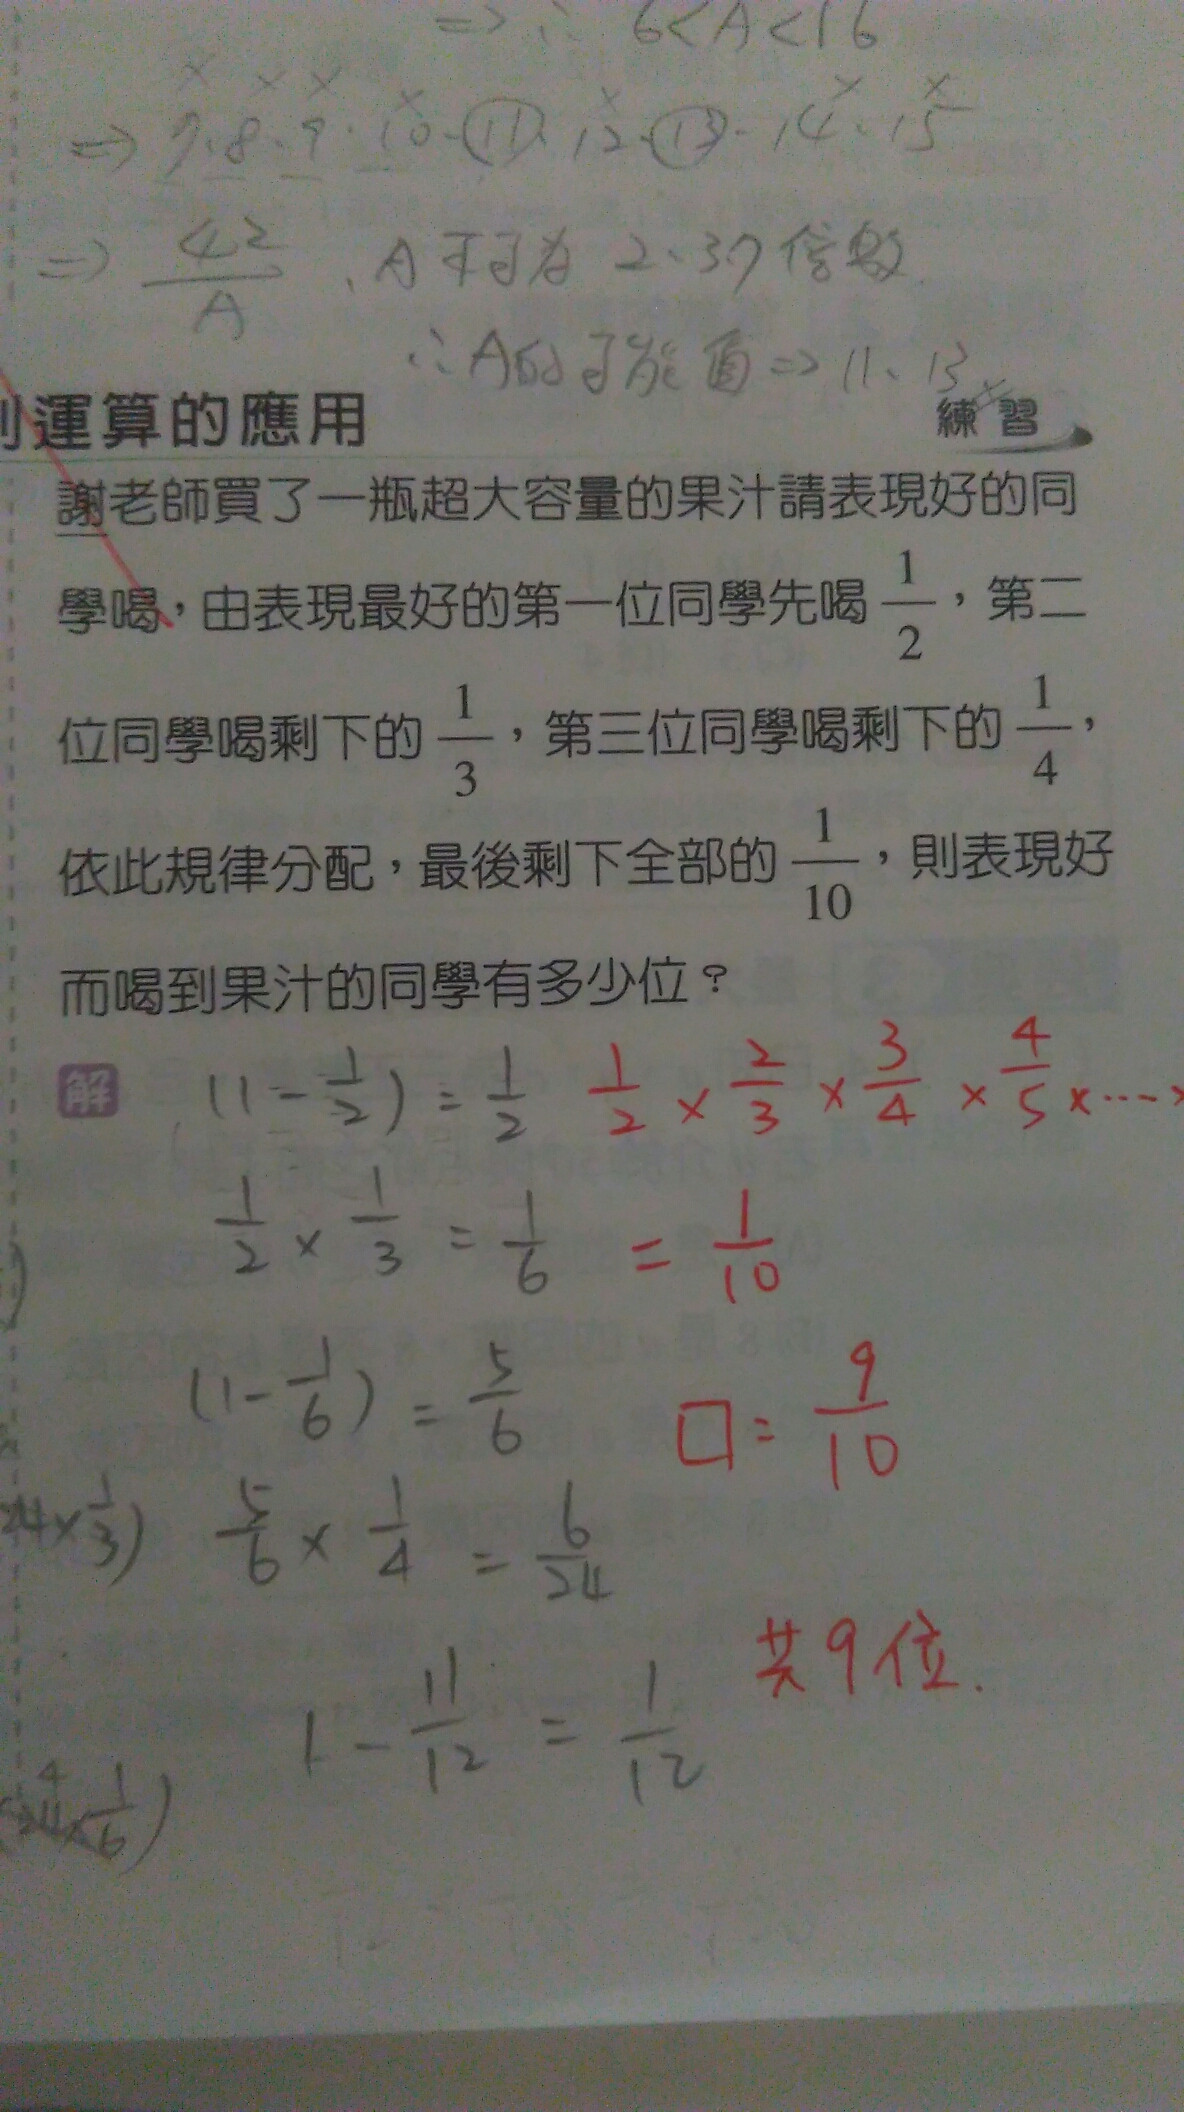 ⇒ ∴ 6<A<16
× × × × × × ×
⇒ 7、8、9、10、11、12、13、14、15
⇒ 42/A 、A不可為 2、3、7 倍數
∴A的可能值⇒ 11、13
運算的應用 練習
謝老師買了一瓶超大容量的果汁請表現好的同
學喝，由表現最好的第一位同學先喝 1/2，第二
位同學喝剩下的 1/3，第三位同學喝剩下的 1/4，
依此規律分配，最後剩下全部的 1/10，則表現好
而喝到果汁的同學有多少位？
解 (1-1/2) = 1/2 1/2 × 2/3 × 3/4 × 4/5 ×…×
1/2 × 1/3 = 1/6 = 1/10
(1-1/6) = 5/6 □ = 9/10
24×1/3) 5/6 × 1/4 = 6/24
共9位.
1 - 11/12 = 1/12
4
24×1/6)